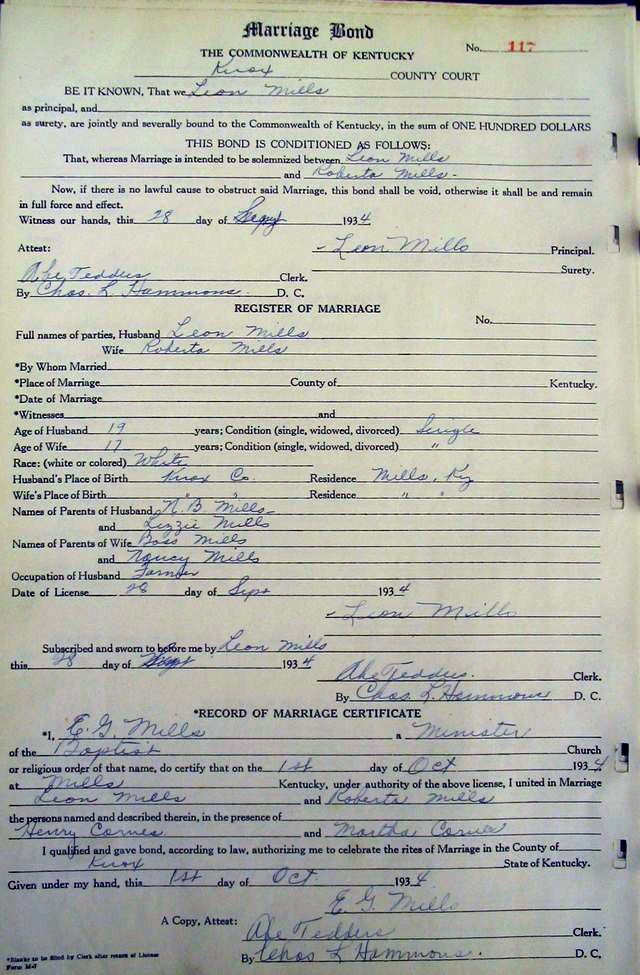 Marriage Bond
THE COMMONWEALTH OF KENTUCKY No. 117
Knox COUNTY COURT
BE IT KNOWN, That we Leon Mills
as principal, and
as surety, are jointly and severally bound to the Commonwealth of Kentucky, in the sum of ONE HUNDRED DOLLARS
THIS BOND IS CONDITIONED AS FOLLOWS:
That, whereas Marriage is intended to be solemnized between Leon Mills
and Roberta Mills.
Now, if there is no lawful cause to obstruct said Marriage, this bond shall be void, otherwise it shall be and remain
in full force and effect.
Witness our hands, this 28 day of Sept 1934
Attest: Leon Mills Principal.
Surety.
Abe Tedders Clerk.
By Chas. L. Hammons. D. C.
REGISTER OF MARRIAGE
No.
Full names of parties, Husband Leon Mills
Wife Roberta Mills
*By Whom Married
*Place of Marriage County of Kentucky.
*Date of Marriage
*Witnesses and
Age of Husband 19 years; Condition (single, widowed, divorced) Single
Age of Wife 17 years; Condition (single, widowed, divorced) "
Race: (white or colored) White
Husband's Place of Birth Knox Co. Residence Mills, Ky
Wife's Place of Birth " " Residence " "
Names of Parents of Husband N. B. Mills
and Lizzie Mills
Names of Parents of Wife Boss Mills
and Nancy Mills
Occupation of Husband Farmer
Date of License 28 day of Sept 1934
Leon Mills
Subscribed and sworn to before me by Leon Mills
this 28 day of Sept 1934
Abe Tedders. Clerk.
By Chas. L. Hammons D. C.
*RECORD OF MARRIAGE CERTIFICATE
*I, E. G. Mills a Minister
of the Baptist Church
or religious order of that name, do certify that on the 1st day of Oct 1934
at Mills Kentucky, under authority of the above license, I united in Marriage
Leon Mills and Roberta Mills
the persons named and described therein, in the presence of
Henry Cornes and Martha Cornes
I qualified and gave bond, according to law, authorizing me to celebrate the rites of Marriage in the County of
Knox State of Kentucky.
Given under my hand, this 1st day of Oct. 1934
E. G. Mills
A Copy, Attest: Abe Tedders Clerk.
*Blanks to be filed by Clerk after return of License
Form M-7 By Chas L Hammons. D. C.